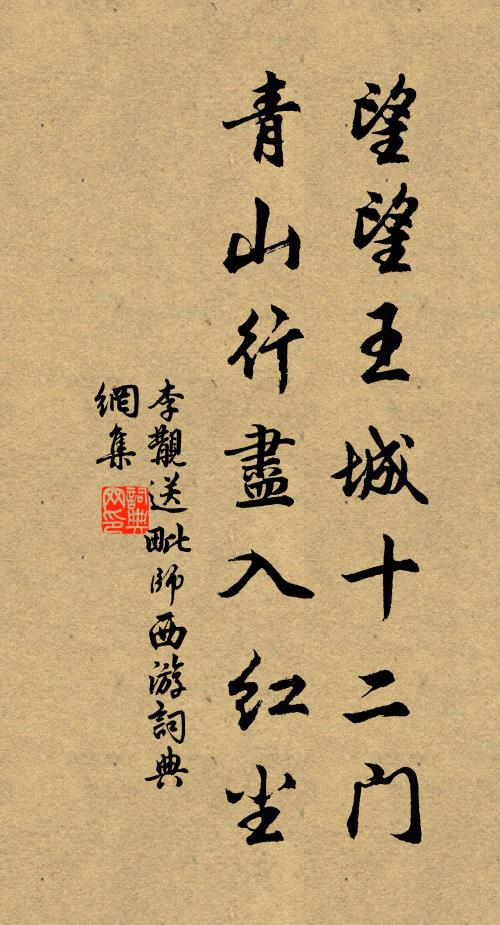 望望王城十二门
青山行盡入红尘
李觀送毗师西游詞典
網集
詞典网印